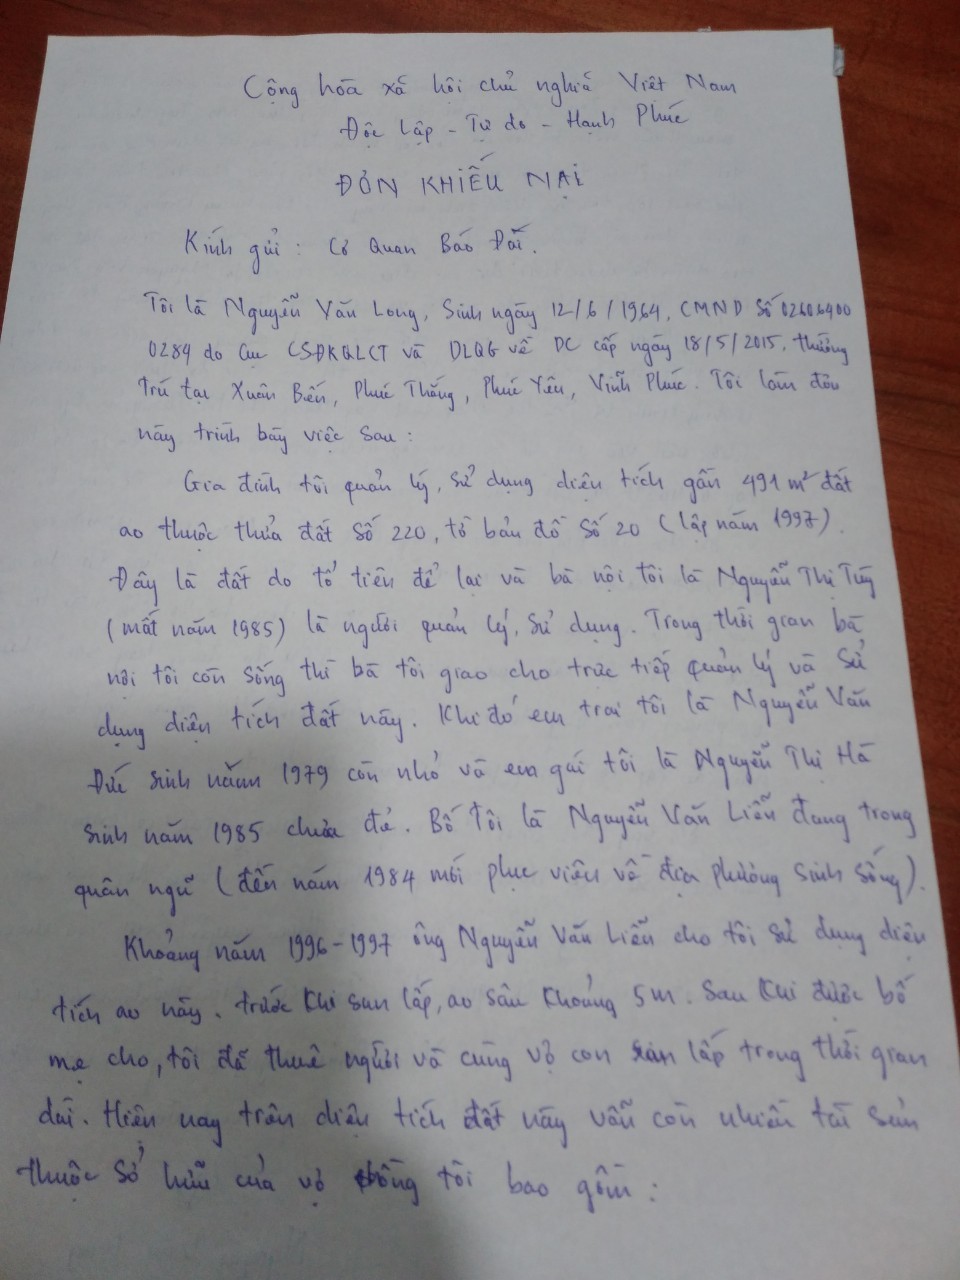 Cộng hòa xã hội chủ nghĩa Việt Nam
Độc lập - Tự do - Hạnh Phúc
ĐƠN KHIẾU NẠI
Kính gửi : Cơ Quan Báo Đài.
Tôi là Nguyễn Văn Long, Sinh ngày 12/6/1964, CMND Số 02606400
0284 do Cục CSĐKQLCT và DLQG về DC cấp ngày 18/5/2015. thường
trú tại Xuân Bến, Phúc Thắng, Phúc Yên, Vĩnh Phúc. Tôi làm đơn
này trình bày việc sau :
Gia đình tôi quản lý, sử dụng diện tích gần 491 m² đất
ao thuộc thửa đất số 220, tờ bản đồ số 20 (lập năm 1997).
Đây là đất do tổ tiên để lại và bà nội tôi là Nguyễn Thị
(mất năm 1985) là người quản lý, sử dụng. Trong thời gian bà
nội tôi còn sống thì bà tôi giao cho trực tiếp quản lý và sử
dụng diện tích đất này. Khi đó em trai tôi là Nguyễn Văn
Đức sinh năm 1979 còn nhỏ và em gái tôi là Nguyễn Thị Hà
sinh năm 1985 chưa đẻ. Bố Tôi là Nguyễn Văn Liễn đang trong
quân ngũ (đến năm 1984 mới phục viên về địa phương sinh sống).
Khoảng năm 1996-1997 ông Nguyễn Văn Liễn cho tôi sử dụng diện
tích ao này. trước khi san lấp, ao sâu khoảng 5m. Sau khi được bố
mẹ cho, tôi đã thuê người và cùng vợ con san lấp trong thời gian
dài. Hiện nay trên diện tích đất này vẫn còn nhiều tài sản
thuộc sở hữu của vợ chồng tôi bao gồm :